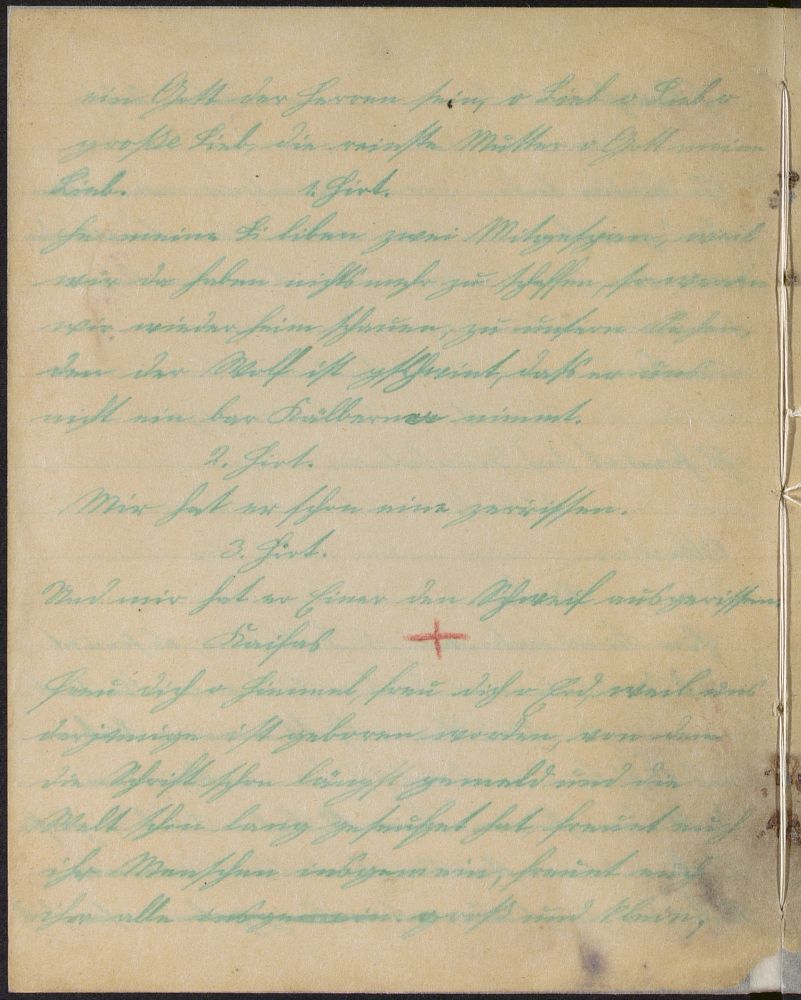 ein Gott der Herren sein, o Lieb o Liebe
große Lieb, die reinste Mutter o Gott meine
Lieb. 1. Hirt.
He meine li liben zwei Mitgespan, weil
wir da haben nichts mehr zu schaffen, so werden
wir wieder heim schauen, zu unsern
den der Wolf ist gschwint, daß er uns
nicht ein bar Kälbern nimmt.
2. Hirt.
Mir hat er schon eine zerrissen.
3. Hirt.
Und mir hat er Einer den Schweif ausgerissen.
Kaifas +
Freu dich o Himmel, freu dich o Erd, weil uns
derjenige ist geboren worden, von dem
die Schrift schon längst gemeld und die
Welt schon lang geseufzet hat, freuet euch
ihr Menschen insgemein, freuet euch
ihr alle insgemein groß und klein,